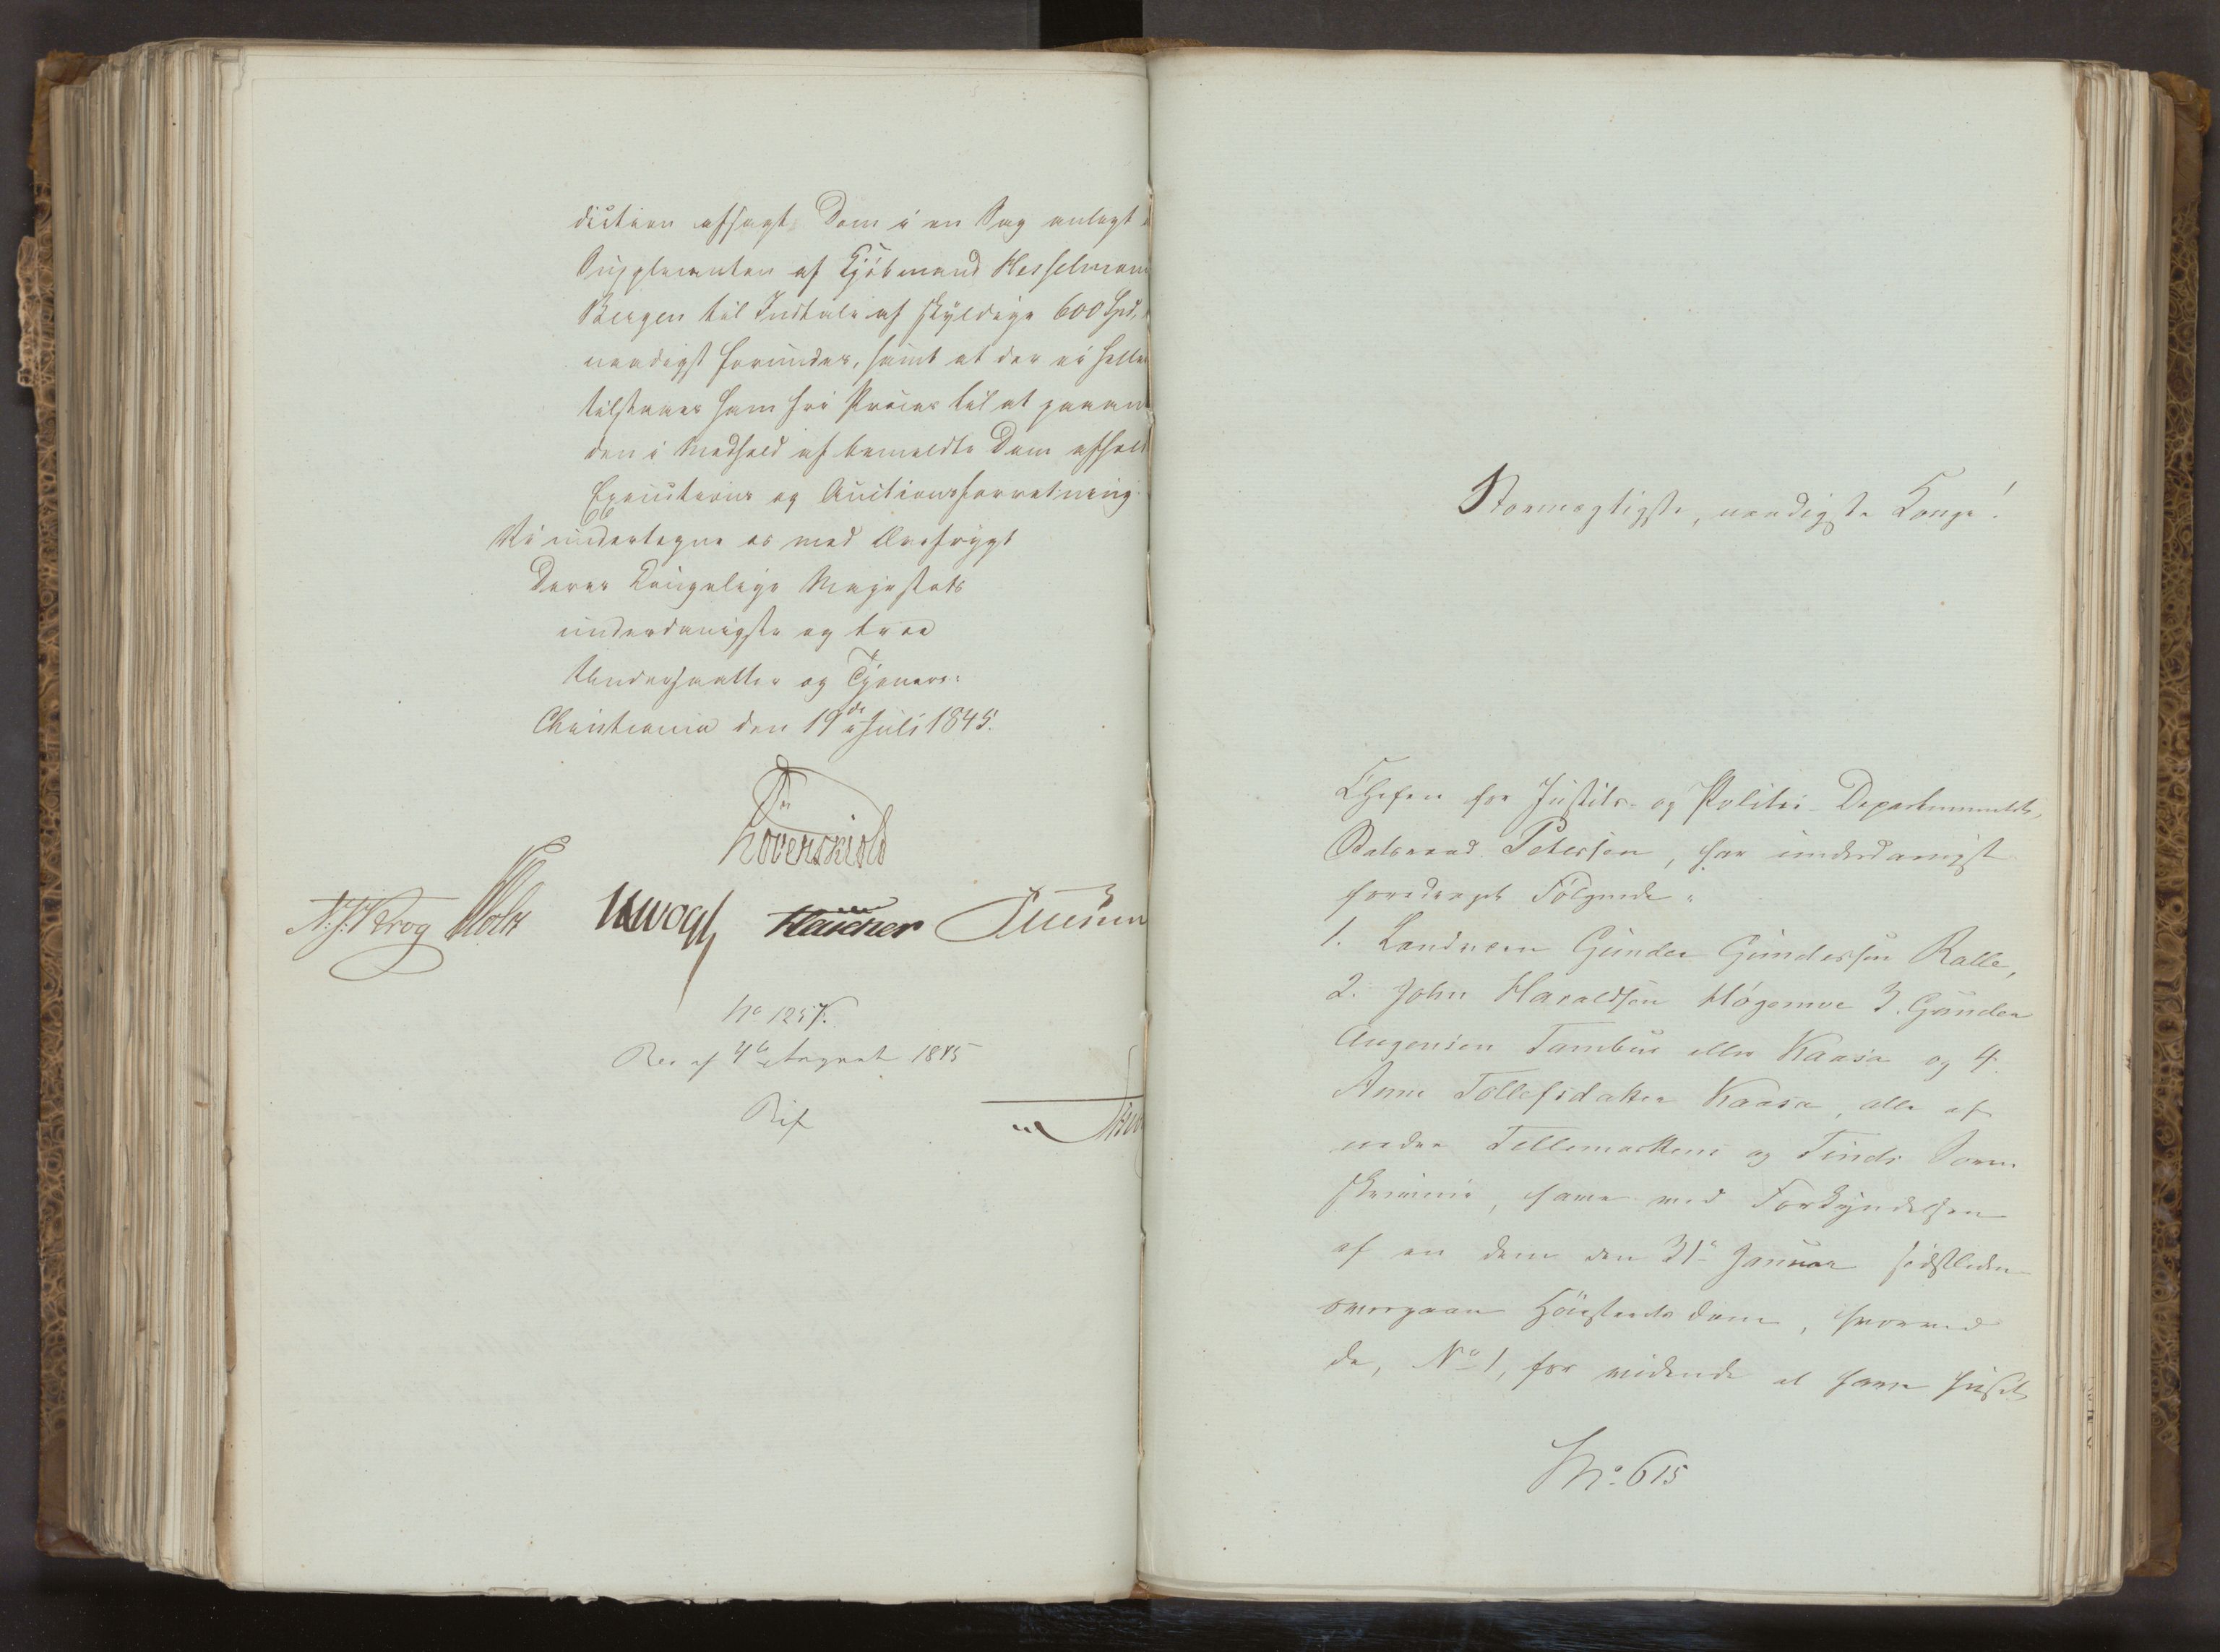 diction afsagt Dom i en Sag anlagt
Supplicanten af Kjöbmand Hesselmann
Bergen til Indtale af skyldige 600 Spd,
naadigst forundes, samt at der ei heller
tilstaaes ham fri Proces til at paaan
den i Medhold af bemeldte Dom afhold
Executions og Auctionsforretning.
Vi undertegne os med Ærefrygt
Deres Kongelige Majestæts
underdanigste og troe
Undersaatter og Tjenere:
Christiania den 19de Juli 1845.
Löverskiold
N. J. Krog Holst JHVogt
No 1257.
Res af 4de August 1845
Nordre
Stormægtigste, naadigste Konge!
Chefen for Justits- og Politi-Departementet,
Statsraad Petersen, har underdanigst
foredraget Følgende:
1. Landværn Gunder Gundersen Kalle,
2. John Haraldsen Høgemoe 3. Gunder
Augensen Tambur eller Kaasa og 4.
Anne Tollefsdatter Kaasa, alle af
nedre Tellemarkens og Tinds Soren-
skriveri, have ved Forkyndelsen
af en dem den 31te Januar sidstleden
overgaaen Höiesteretsdom, hvorved
de, No 1, for vidende at have huset
No. 615